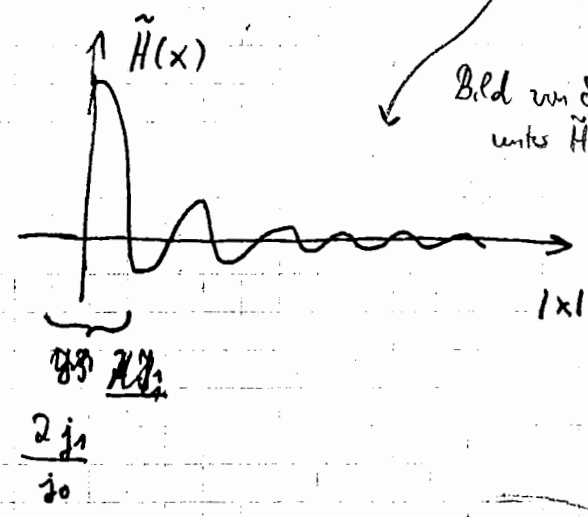 H̃(x)
Bild von δ
unter H̃
|x|
2 j₁
j₀